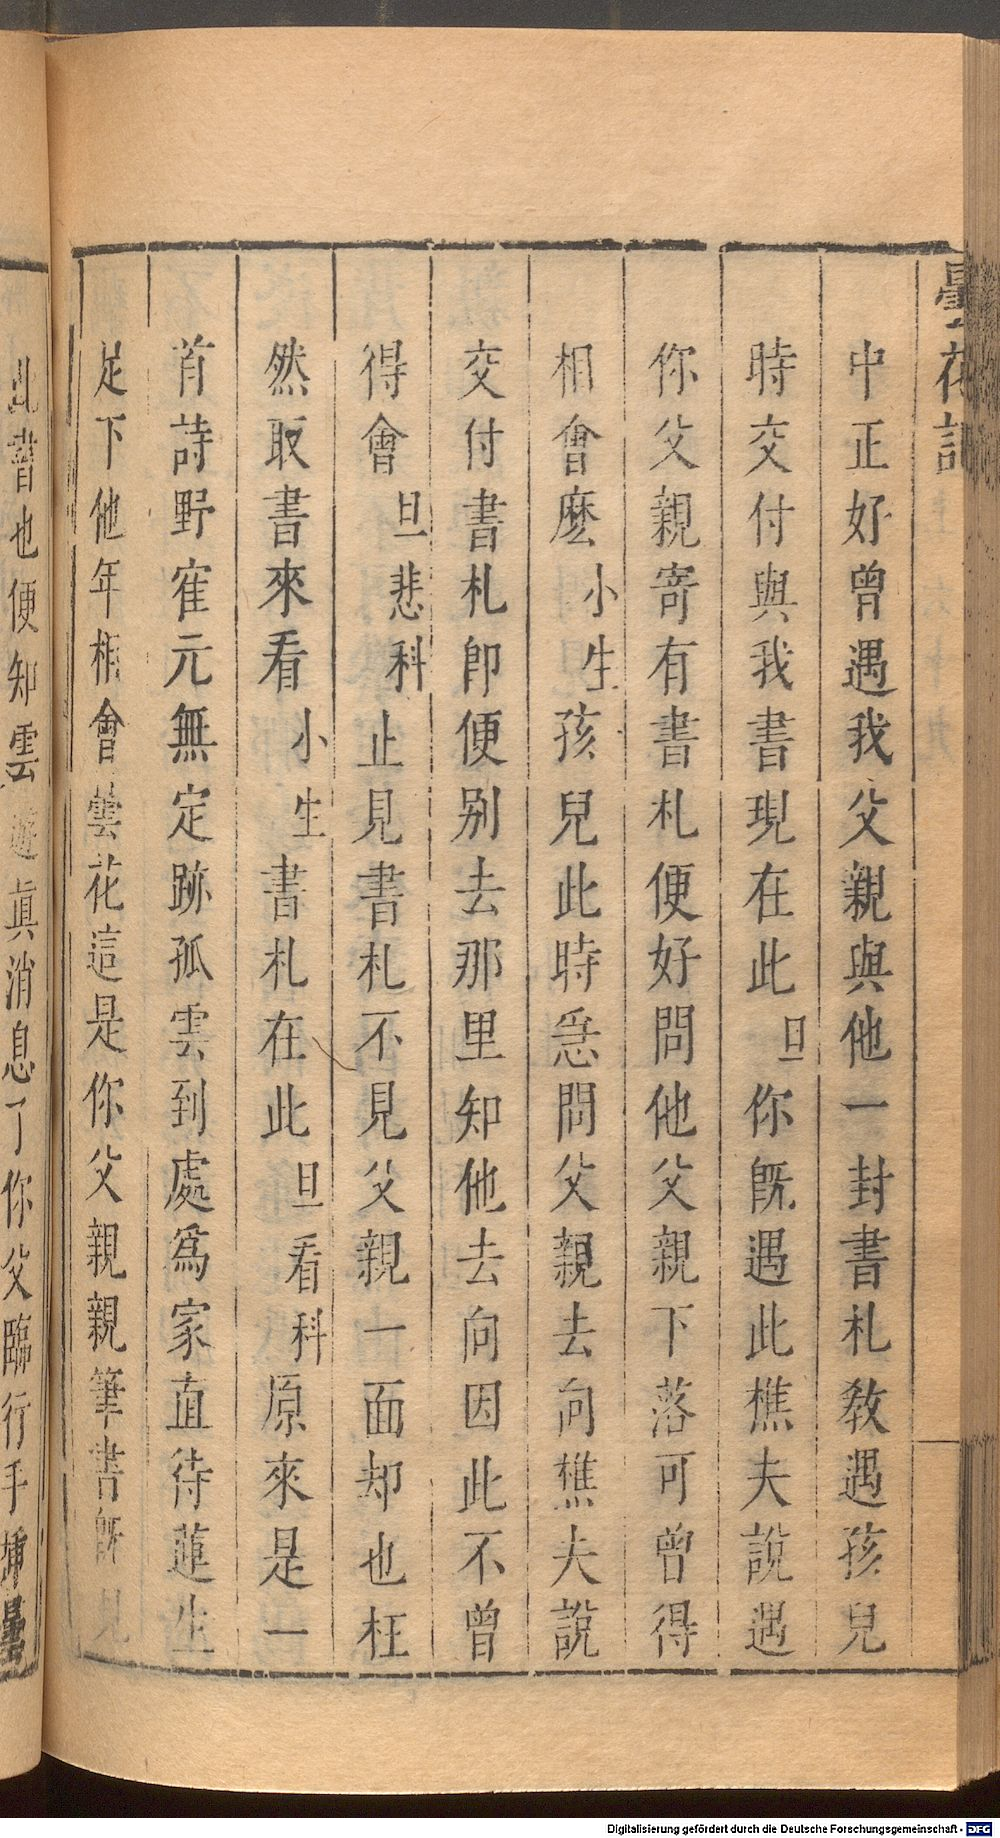 曇花記
中正好曾遇我父親與他一封書札教遇孩兒
時交付與我書現在此旦你旣遇此樵夫說遇
你父親寄有書札便好問他父親下落可曾得
相會麽小生孩兒此時恁問父親去向樵夫說
交付書札卽便別去那里知他去向因此不曾
得會旦悲科止見書札不見父親一面却也枉
然取書來看小生書札在此旦看科原來是一
首詩野寉元無定跡孤雲到處爲家直待蓮生
足下他年相會曇花這是你父親親筆書旣見
此書也便知雲遊眞消息了你父臨行手揷曇
Digitalisierung gefördert durch die Deutsche Forschungsgemeinschaft - DFG